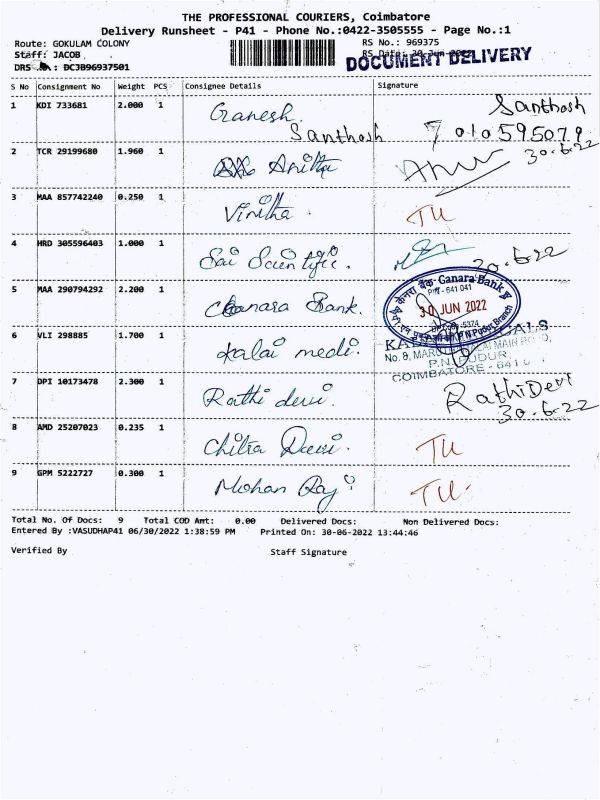 THE PROFESSIONAL COURIERS, Coimbatore
Delivery Runsheet - P41 - Phone No.:0422-3505555 - Page No.:1
Route: GOKULAM COLONY
RS No.: 969375
Staff: JACOB
RS Date: 30-Jun-2022
DOCUMENT DELIVERY
DRS : DCJB96937501
S No Consignment No Weight PCS Consignee Details Signature
1 KDI 733681 2.000 1 Ganesh. Santhosh
Santhosh 7010595079
30-6-22
2 TCR 29199680 1.960 1 Anitha
3 MAA 857742240 0.250 1 Vinitha . TU
4 HRD 305596403 1.000 1 Sai Scientific.
30-6-22
5 MAA 290794292 2.200 1 Canara Bank.
केनरा बैंक Canara Bank
PIN - 641 041
30 JUN 2022
P N Pudur Branch
6 VLI 298885 1.700 1 Kalai medi.
P.N. PUDUR,
COIMBATORE - 641 0
7 DPI 10173478 2.300 1 Rathi devi. RathiDevi
30-6-22
8 AMD 25207023 0.235 1 Chitra Devi. TU
9 GPM 5222727 0.300 1 Mohan Raj TU.
Total No. Of Docs: 9 Total COD Amt: 0.00 Delivered Docs: Non Delivered Docs:
Entered By :VASUDHAP41 06/30/2022 1:38:59 PM Printed On: 30-06-2022 13:44:46
Verified By Staff Signature